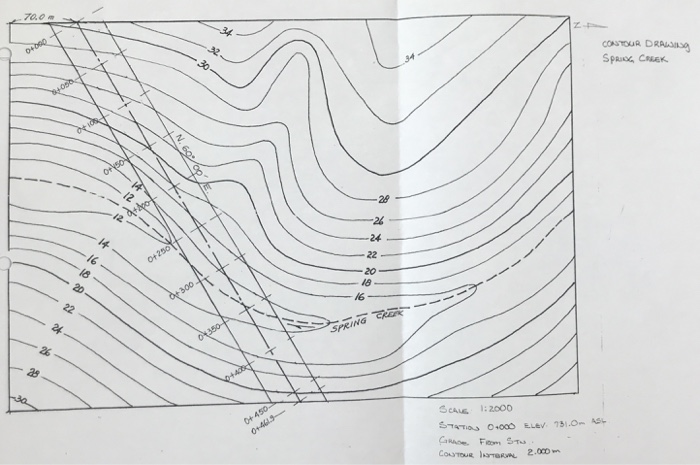 70.0 m
Z
CONTOUR DRAWING
SPRING CREEK
34
32
30
34
0+000
0+050
0+100
0+150
N. 60° 00' E
14
12
12
0+200
0+250
14
16
18
20
22
24
26
28
30
28
26
24
22
20
18
16
0+300
0+350
SPRING CREEK
0+400
0+450
SCALE 1:2000
STATION 0+000 ELEV. 731.0m ASL
GRADE FROM STN.
CONTOUR INTERVAL 2.000m